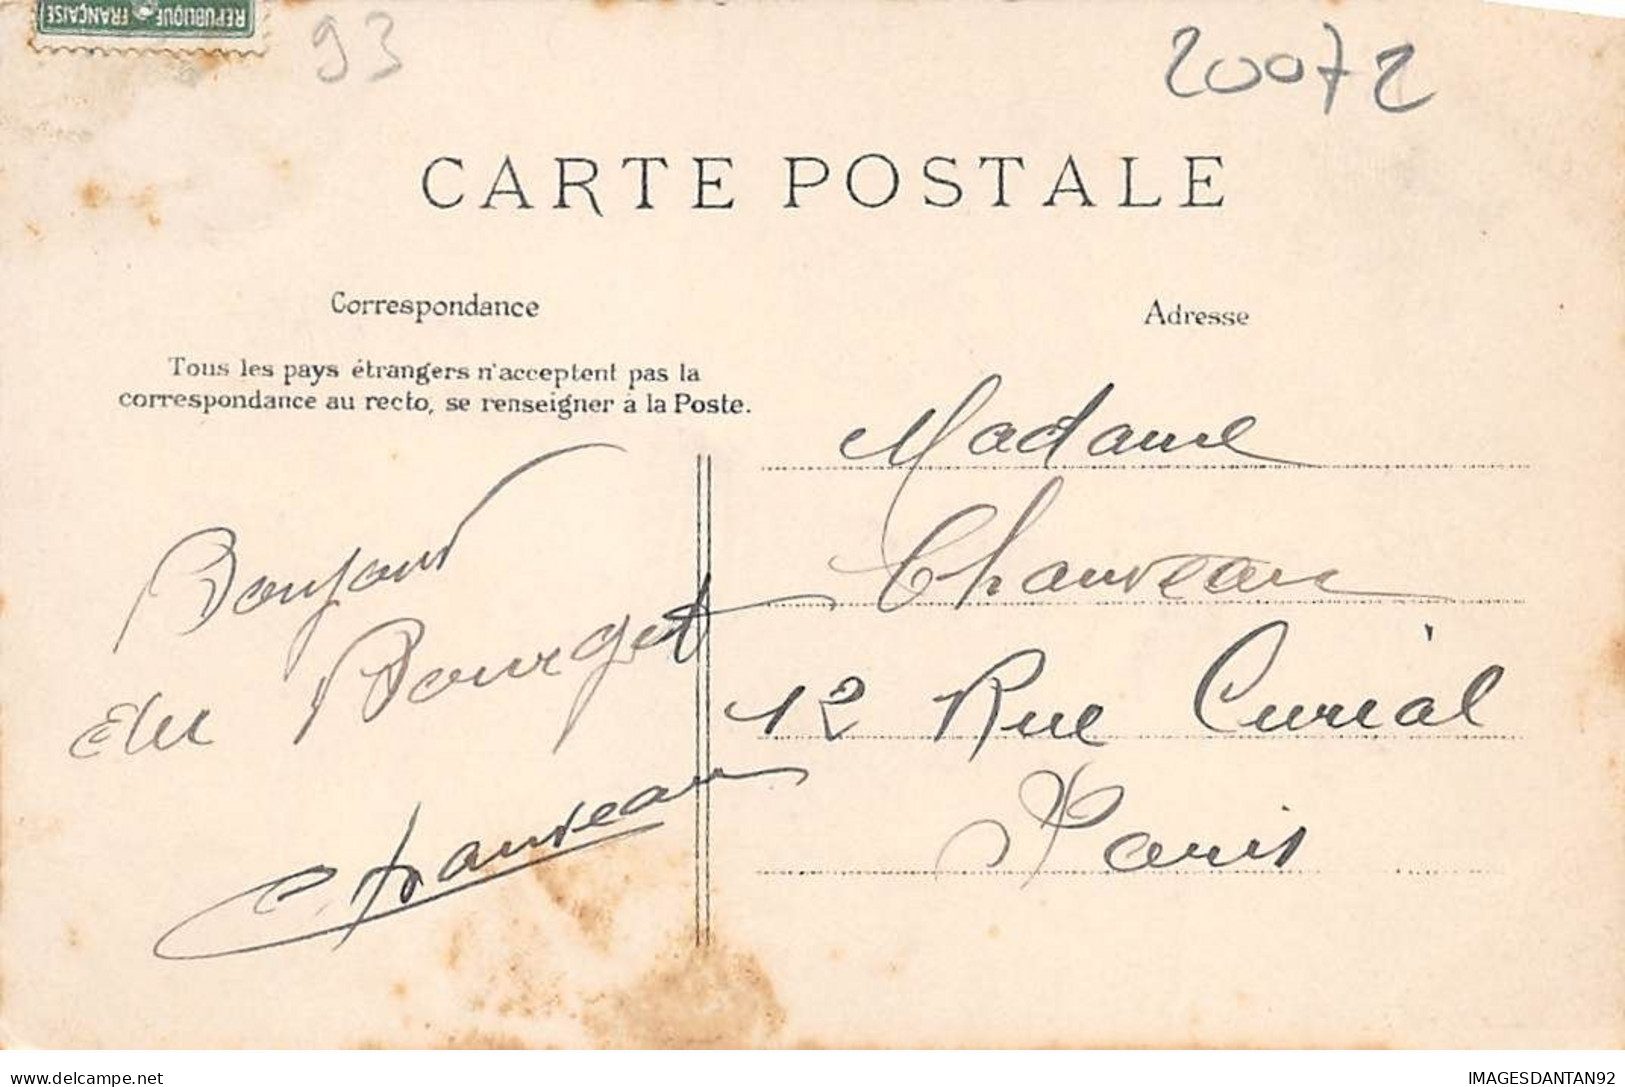 REPUBLIQUE FRANÇAISE
93
20072
CARTE POSTALE
Correspondance
Tous les pays étrangers n'acceptent pas la
correspondance au recto, se renseigner à la Poste.
Bonjour
du Bourget
Chauveau
Adresse
Madame
Chauveau
12 Rue Curial
Paris
delcampe.net
IMAGESDANTAN92